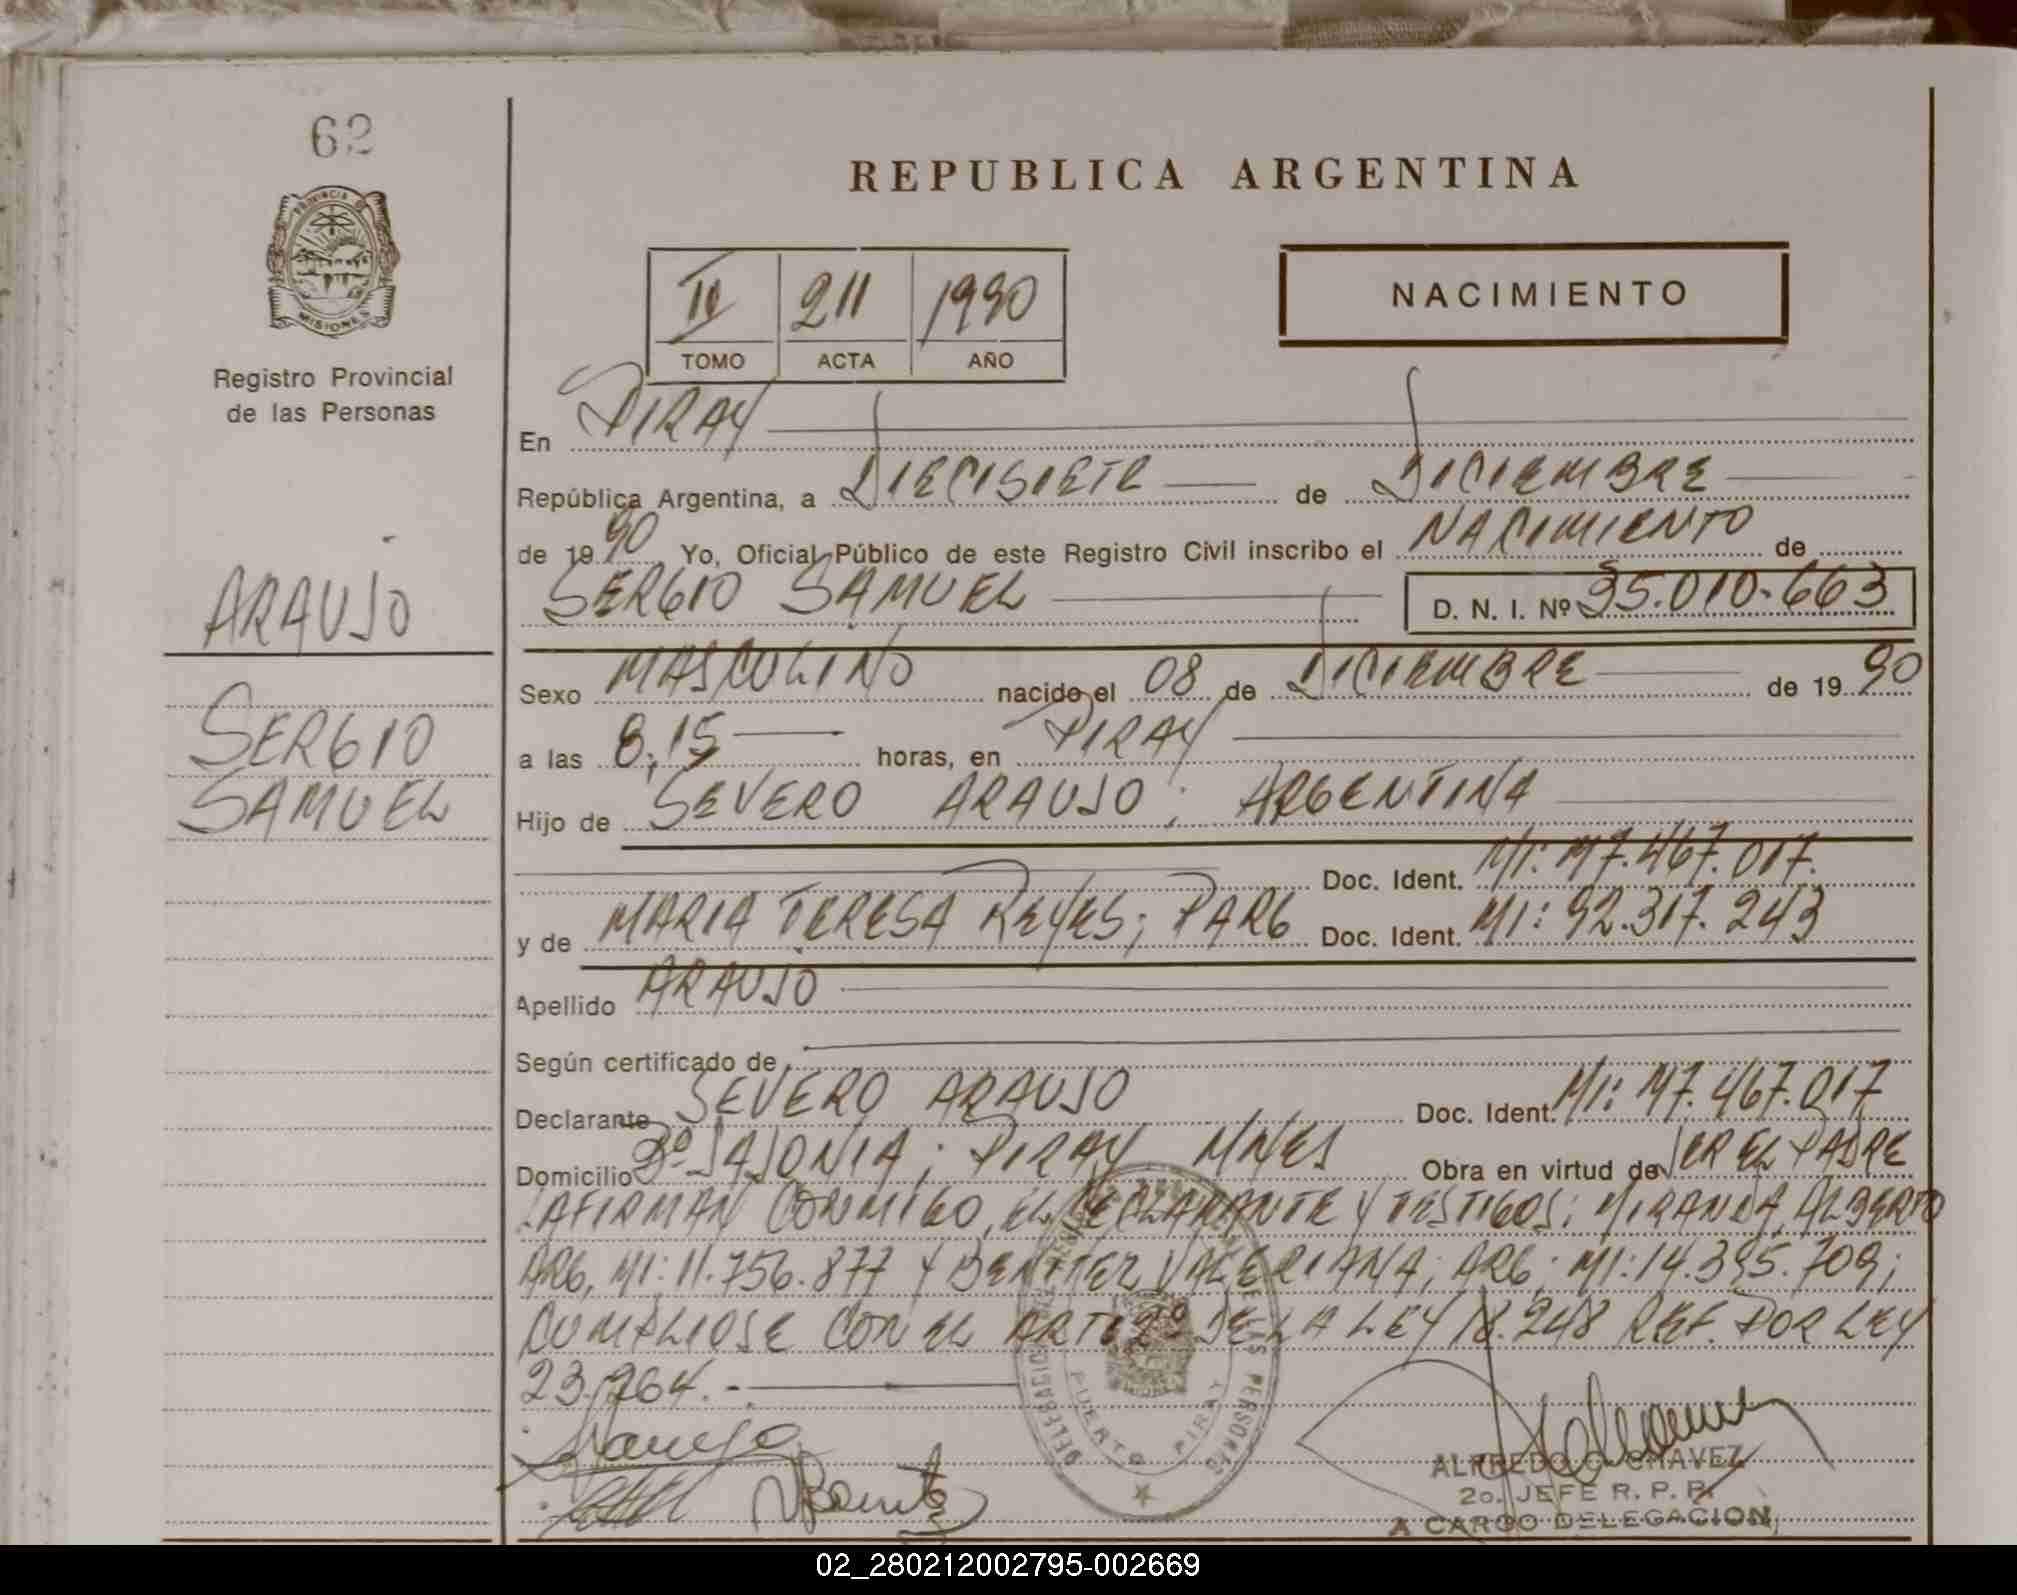 62
PROVINCIA DE
MISIONES
Registro Provincial
de las Personas
ARAUJO
SERGIO
SAMUEL
REPUBLICA ARGENTINA
IV 211 1990
TOMO ACTA AÑO
NACIMIENTO
En PIRAY
República Argentina, a DIECISIETE de DICIEMBRE
de 1990 Yo, Oficial Público de este Registro Civil inscribo el NACIMIENTO de
SERGIO SAMUEL D. N. I. Nº 35.010.663
Sexo MASCULINO nacido el 08 de DICIEMBRE de 1990
a las 8,15 horas, en PIRAY
Hijo de SEVERO ARAUJO; ARGENTINA
Doc. Ident. MI: M7.467.017.
y de MARIA TERESA REYES; PARG Doc. Ident. MI: 92.317.243
Apellido ARAUJO
Según certificado de
Declarante SEVERO ARAUJO Doc. Ident. MI: M7.467.017
Domicilio Bº SAJONIA; PIRAY MNES Obra en virtud de SER EL PADRE
LA FIRMAN CONMIGO, EL DECLARANTE Y TESTIGOS; MIRANDA, ALBERTO
ARG, MI: 11.756.877 Y BENITEZ VALERIANA; ARG; MI: 14.395.709;
CUMPLIOSE CON EL ART 2º DE LA LEY 18.248 REF. POR LEY
23.264.-
PUERTO PIRAY
ALFREDO C. CHAVEZ
2o. JEFE R. P. P.
A CARGO DELEGACION
02_280212002795-002669